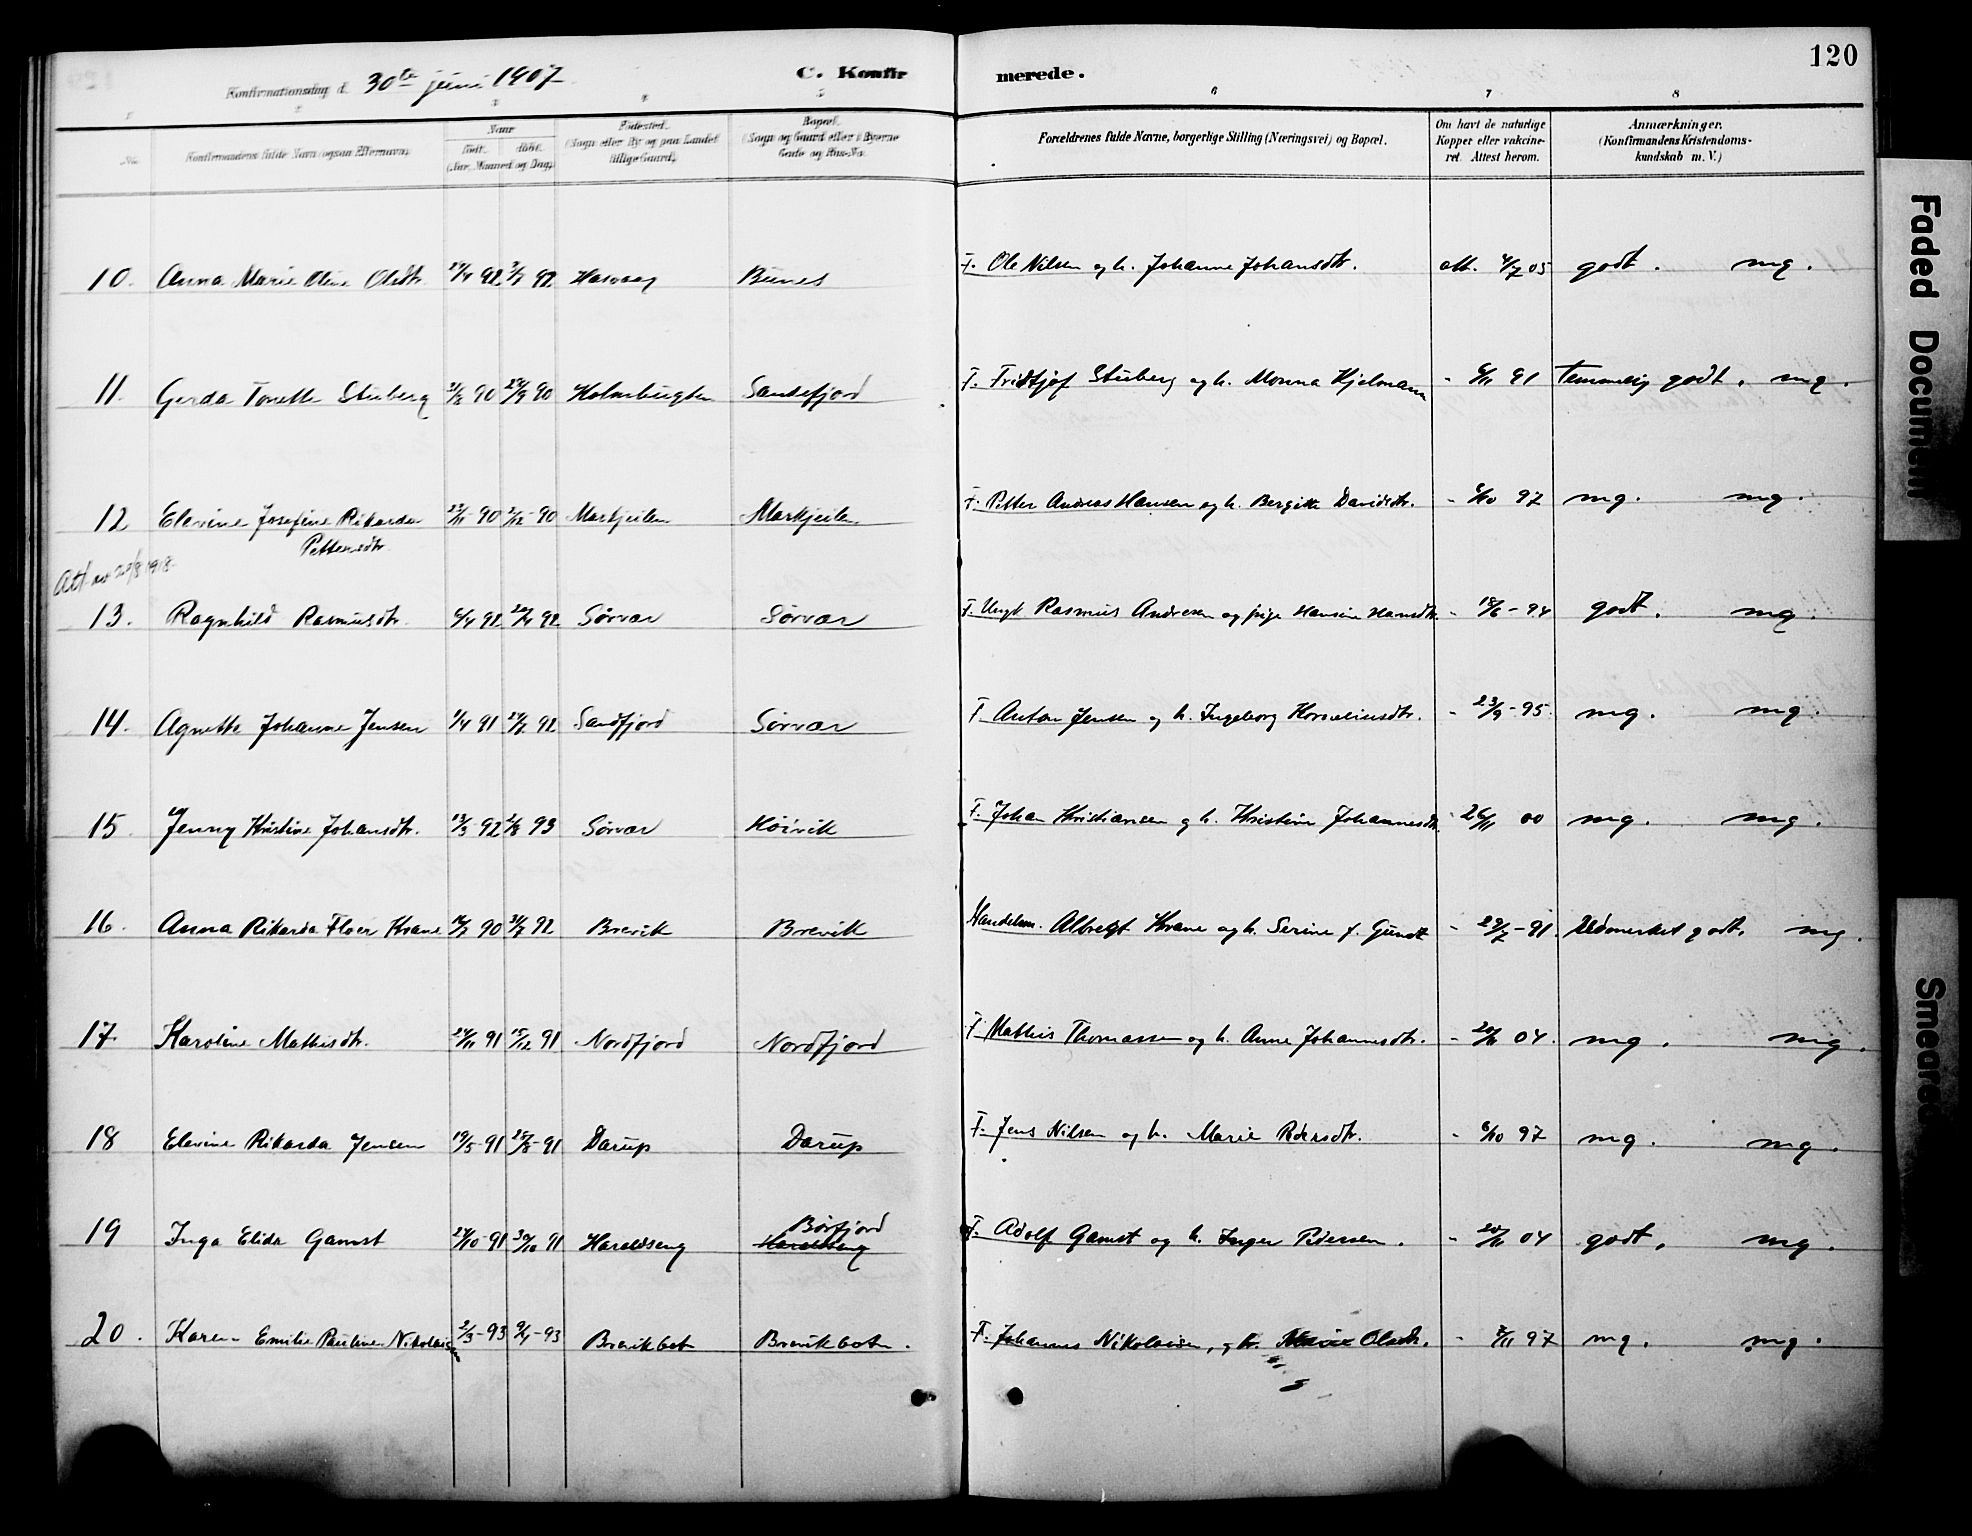 120
Konfirmationsdag d. 30te juni 1907.
C. Konfirmerede.
1 2 3 4 5 6 7 8
No. Konfirmandens fulde Navn (ogsaa Efternavn). Naar Født. døbt. (Aar, Maaned og Dag) Fødested. (Sogn eller By og paa Landet tillige Gaard). Bopæl. (Sogn og Gaard eller i Byerne Gade og Hus-No. Forældrenes fulde Navne, borgerlige Stilling (Næringsvei) og Bopæl. Om havt de naturlige Kopper eller vakcineret. Attest herom. Anmærkninger. (Konfirmandens Kristendomskundskab m. V.)
10. Anna Marie Oline Olsdtr. 92 92 Hasvaag Bunes F. Ole Nilsen og h. Johanne Johansdtr. att. 4/7 05 godt. mg.
11. Gerda Tonette Stuberg 90 90 Holmbugten Sandefjord F. Fridtjof Stuberg og h. Monna Hjelmann - 6/11 91 Temmelig godt. mg.
12 Elevine Josefine Rikarda 23/11 90 2/12 - 90 Markjeilen Markjeilen F. Petter Andreas Hansen og h. Bergitte Davidsdtr. - 6/10 97 mg. mg.
Pettersdtr.
Att. 20/8 1918.
13. Ragnhild Rasmusdtr. 6/4 92 92 Sørvær Sørvær F. Ungk. Rasmus Andresen og pige Hansine Hansdtr. - 18/6 - 94 godt. mg.
14. Agnette Johanne Jensen 1/4 91 92 Sandfjord Sørvær F. Anton Jensen og h. Ingeborg Korneliusdtr. - 23/9 - 95. mg. mg.
15. Jenny Kristine Johansdtr. 13/3 92 93 Sørvær Høivik F. Johan Kristiansen og h. Kristine Johannesdtr. - 26/11 00 mg. mg.
16. Anna Rikarda Floer Krane 90 92 Brevik Brevik Handelsm. Albregt Krane og h. Serine f. Gundt - 29/7 - 91. Udmerket godt. mg.
17. Karoline Mathisdtr. 24/11 91 15/12 91 Nordfjord Nordfjord F. Mathis Thomassen og h. Anne Johannesdtr. - 20/11 04. mg. mg.
18 Elevine Rikarda Jensen 19/5 - 91 91 Darup Darup F. Jens Nilsen og h. Marie Pedersdtr. - 6/10 97 mg. mg.
19 Inga Elida Gamst 27/10 - 91 30/10 91 Haraldseng Børfjord Haraldseng F. Adolf Gamst og h. Inger Piersen. - 20/11 04 godt. mg.
20. Karen Emilie Pauline Nikolaisen 2/3 - 93 9/4 - 93 Brevikbot Brevikbotn. F. Johannes Nikolaisen, og h. Marie Olsdtr. - 3/11 97 mg. mg.
Faded Document
Smeared